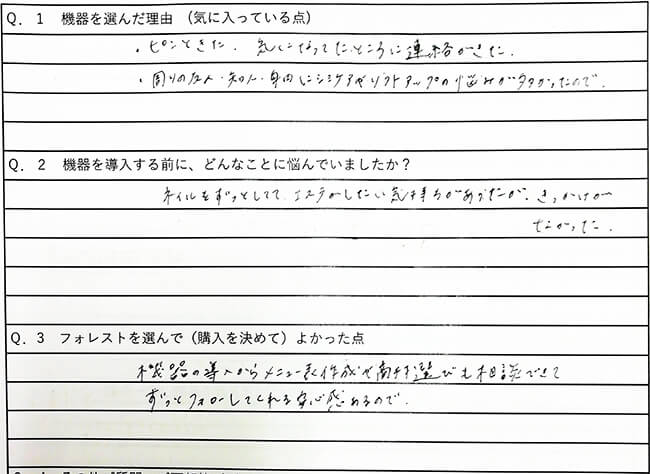 Q. 1 機器を選んだ理由 （気に入っている点）
・ピンときた. 気になってたところに連絡がきた.
・周りの友人・知人・身内にシミケアやリフトアップの悩みが多かったので.
Q. 2 機器を導入する前に、どんなことに悩んでいましたか？
ネイルをずっとしてて、エステがしたい気持ちがあったが、きっかけが
なかった.
Q. 3 フォレストを選んで（購入を決めて）よかった点
機器の導入からメニュー表作成や商材選びも相談できて
ずっとフォローしてくれる安心感あるので.